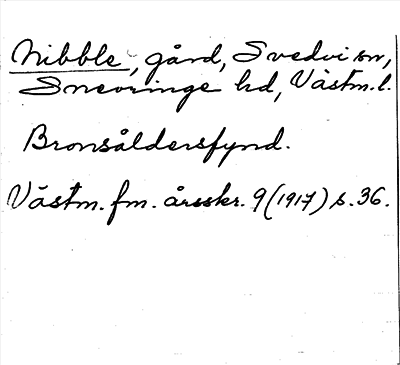 Nibble, gård, Svedvi sn,
Snevringe hd, Västm. l.
Bronsåldersfynd.
Västm. fm. årsskr. 9 (1917) s. 36.